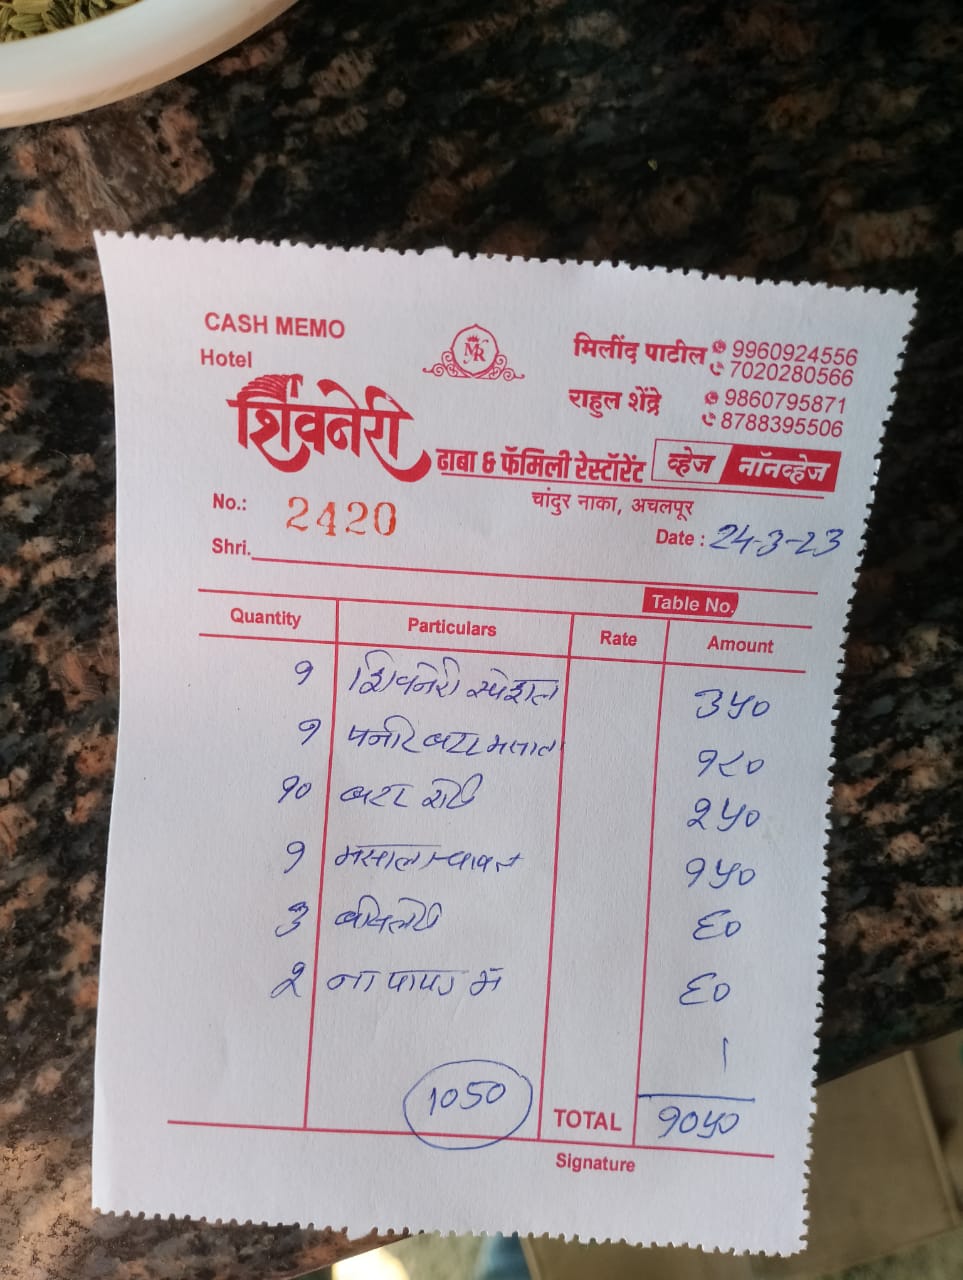 CASH MEMO
Hotel
शिवनेरी
ढाबा & फॅमिली रेस्टॉरेंट
व्हेज नॉनव्हेज
MR
मिलींद पाटील 9960924556
7020280566
राहुल शेंद्रे 9860795871
8788395506
चांदुर नाका, अचलपूर
No.: 2420
Date : 24-3-23
Shri.
Table No.
Quantity Particulars Rate Amount
१ शिवनेरी स्पेशल ३५०
१ पनीर बटर मसाला १८०
१० बटर रोटी २५०
१ मसाला १५०
३ बीसलेरी ६०
२ ना पापड म ६०
1050
TOTAL १०५०
Signature